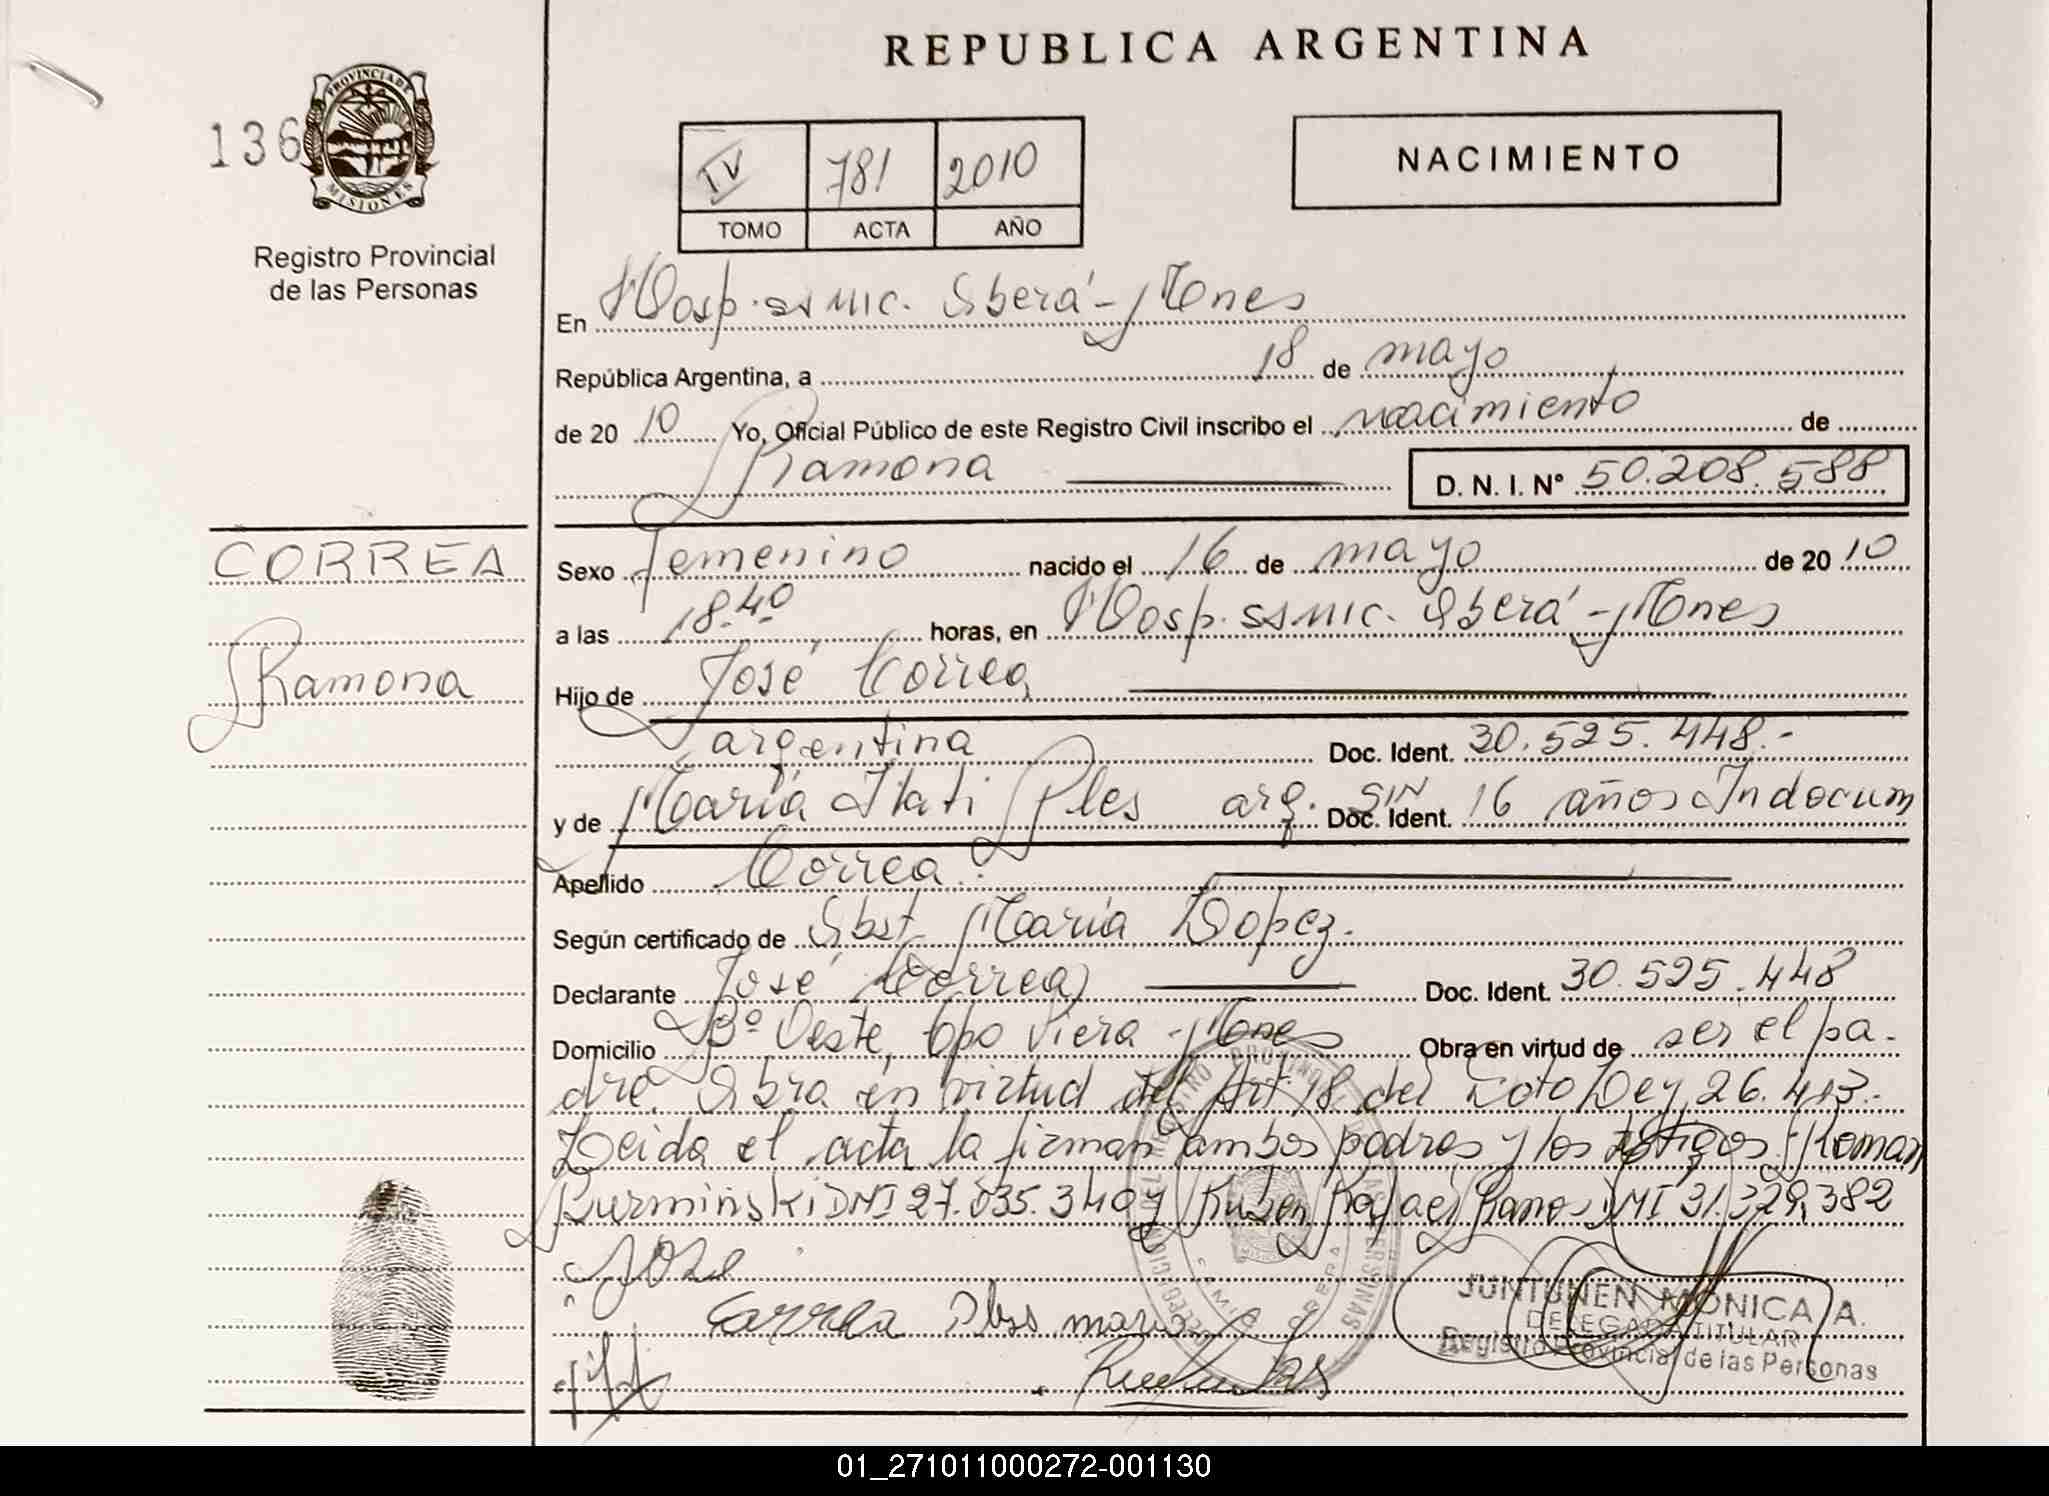 REPUBLICA ARGENTINA
136
PROVINCIA DE
MISIONES
Registro Provincial
de las Personas
IV 781 2010
TOMO ACTA AÑO
NACIMIENTO
En Hosp. ssmic. Oberá - Mnes
República Argentina, a 18 de mayo
de 2010 Yo, Oficial Público de este Registro Civil inscribo el nacimiento de
Ramona D. N. I. Nº 50.208.588
CORREA
Ramona
Sexo femenino nacido el 16 de mayo de 2010
a las 18.40 horas, en Hosp. ssmic. Oberá - Mnes
Hijo de José Correa
argentina Doc. Ident. 30.525.448.-
y de María Itati Ples arg. SIN Doc. Ident. 16 años Indocum
Apellido Correa.
Según certificado de Obst. María Lopez.
Declarante José Correa Doc. Ident. 30.525.448
Domicilio Bº Oeste, Cpo Viera - Mnes Obra en virtud de ser el pa-
dre. Obra en virtud del Art. 18 del Dto Ley 26.413.-
Leida el acta la firman ambos padres y los testigos Roman
Burminski DNI 27.035.340 y Ruben Rafael Ramos DNI 31.329.382
Jose
Correa Ples maria
JUNTUNEN MONICA A.
DELEGADA TITULAR
Registro Provincial de las Personas
01_271011000272-001130